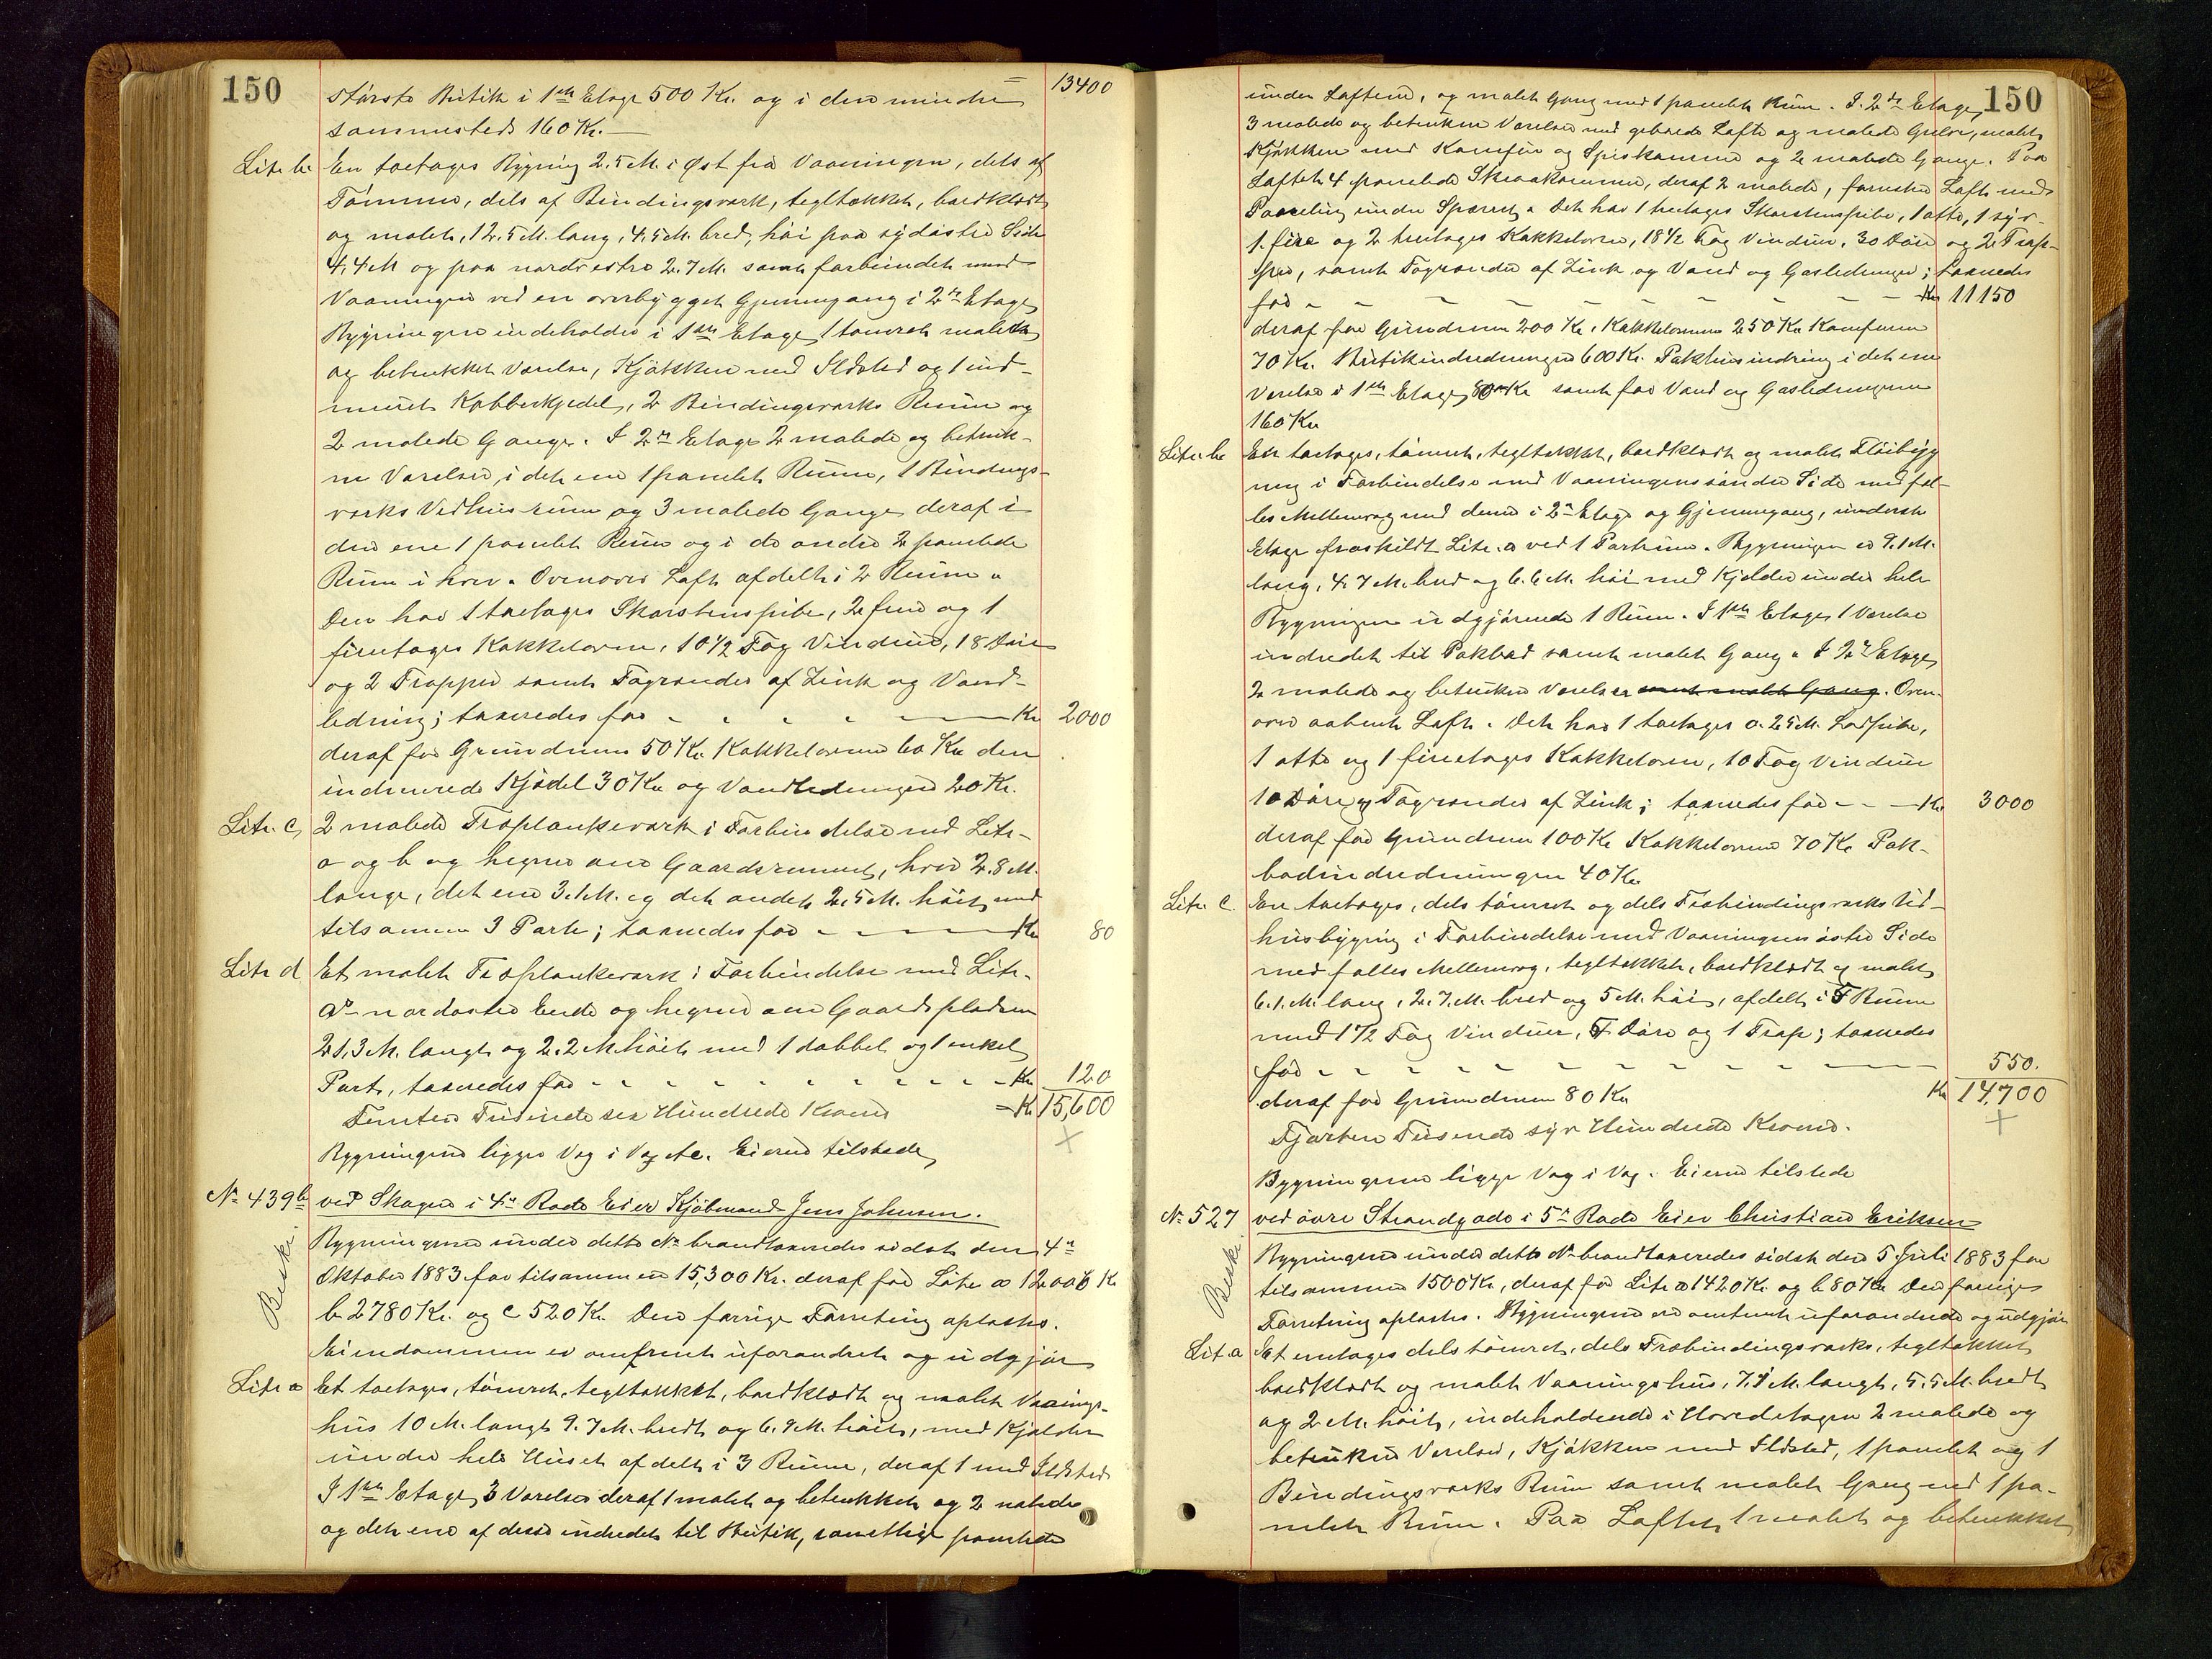 150
13400
største Butik i 1ste Etage 500 Kr. og i den mindre
sammesteds 160 Kr.
Litr. b. En toetages Bygning 2.5 M. i Øst fra Vaaningen, dels af
Tømmer, dels af Bindingsværk, tegltækket, bordklædt
og malet, 12.5 M. lang, 4.5 M. bred, høi paa sydøstre Side
4.4 M og paa nordvestre 2.7 M. samt forbundet med
Vaaningen ved en overbygget Gjennemgang i 2n Etage
Bygningen indeholder i 1ste Etage 1 tømret malet
og betrukket Værelse, Kjøkken med Ildsted og 1 ind-
muret Kobberkjedel, 2 Bindingsværks Rum og
2 malede Gange. I 2n Etage 2 malede og betruk-
ne Værelser, i det ene 1 panelet Rum, 1 Bindings-
værks Vedhusrum og 3 malede Gange, deraf i
den ene 1 panelet Rum og i de andre 2 panelede
Rum i hver. Ovenover Loft afdelt i 2 Rum.
Den har 1 toetages Skorstenspibe, 2 fem og 1
fireetages Kakkelovne, 10 1/2 Fag Vinduer, 18 Døre
og 2 Trapper samt Tagrender af Zink og Vand-
ledning; taxeredes for - - - - - Kr 2000
deraf for Grundmur 50 Kr. Kakkelovne 60 Kr den
indmurede Kjedel 30 Kr og Vandledningen 20 Kr.
Litr. c, 2 malede Træplankeværk i Forbindelse med Litr.
a og b og hegner om Gaardsrummet, hver 2.8 M.
lange, det ene 3.1 M. og det andet 2.5 M. høit, med
tilsammen 3 Porte; taxeredes for - - - Kr 80
Litr d Et malet Træplankeværk i Forbindelse med Litr.
as nordøstre Ende og hegner om Gaardspladsen
21.3 M. langt og 2.2 M. høit med 1 dobbel og 1 enkel
Port, taxeredes for - - - - - - - - - Kr 120
Femten Tusinde sex Hundrede Kroner = Kr 15,600
Bygningerne ligger Væg i Væg etc. Eieren tilstede,
No 439b ved Skagen i 4n Rode Eier Kjøbmand Jens Johnsen.
Beski.
Bygningerne under dette No brandtaxeredes sidst den 4n
Oktober 1883 for tilsammen 15,300 Kr. deraf for Litr a 12000 Kr
b 2780 Kr. og c 520 Kr. Den forrige Forretning oplæstes.
Eiendommen er omtrent uforandret og udgjør
Litr a Et toetages, tømret, tegltækket, bordklædt og malet Vaanings-
hus 10 M. langt 9.7 M. bredt og 6.9 M. høit, med Kjælder
under hele Huset afdelt i 3 Rum, deraf 1 med Ildsted
I 1ste Etage 3 Værelser deraf 1 malet og betrukket og 2 malede
og det ene af disse indredet til Butik, samtlige panelede
150
under Loftene, og malet Gang med 1 panelet Rum. I 2den Etage
3 malede og betrukne Værelser med gibsede Lofte og malede Gulve, malet
Kjøkken med Komfur og Spiskammer og 2 malede Gange. Paa
Loftet 4 panelede Skraakammer, deraf 2 malede, forresten Loft med
Paneling under Sperret. Det har 1 treetages Skorstenspibe, 1 otte, 1 syv-
1 fire og 2 treetages Kakkelovne, 18 1/2 Fag Vinduer, 30 Døre og 2 Trap-
per, samt Tagrender af Zink og Vand og Gasledninger; taxeredes
for - - - - - - - - - Kr 11150
deraf for Grundmur 200 Kr, Kakkelovnene 250 Kr Komfuren
70 Kr. Butikindredningen 600 Kr. Pakhusindredning i det ene
Værelse i 1ste Etage 80 Kr samt for Vand og Gasledningerne
160 Kr
Litr. b En toetages, tømret, tegltækket, bordklædt og malet Fløibyg
ning i Forbindelse med Vaaningens søndre Side med fæl-
les Mellemvæg med denne i 2n Etage og Gjennemgang, underste
Etage fraskildt Litr. a ved 1 Portrum. Bygningen er 9.1 M.
lang, 4.7 M. bred og 6.6 M. høi med Kjelder under hele
Bygningen udgjørende 1 Rum. I 1ste Etage 1 Værelse
indredet til Pakbod samt malet Gang. I 2n Etage
2 malede og betrukne Værelser samt malet Gang. Oven-
over aabent Loft. Det har 1 toetages 0.25 M. Lodpibe,
1 otte og 1 fireetages Kakkelovne, 10 Fag Vinduer
10 Døre og Tagrender af Zink; taxeredes for - - - Kr 3000
deraf for Grundmur 100 Kr Kakkelovne 70 Kr Pak-
bodindredningen 40 Kr
Litr. c. En toetages, dels tømret og dels Træbindingsværks Ud-
husbygning i Forbindelse med Vaaningens østre Side
med fælles Mellemvæg, tegltækket, bordklædt og malet,
6.1 M. lang, 2.7 M. bred og 5 M. høi, afdelt i 5 Rum
med 1 1/2 Fag Vinduer, 5 Døre og 1 Trap; taxeredes
for - - - - - - - - - - 550.
deraf for Grundmur 80 Kr Kr 14,700
Fjorten Tusende syv Hundrede Kroner.
Bygningerne ligge Væg i Væg. Eieren tilstede
No 527 ved øvre Strandgade i 5n Rode Eier Christian Eriksen
Beski.
Bygningerne under dette No brandtaxeredes sidst den 5 Juli 1883 for
tilsammen 1500 Kr, deraf for Litr a 1420 Kr og b 80 Kr Den forrige
Forretning oplæstes. Bygningerne ere omtrent uforandrede og udgjør
Lit. a Et enetages dels tømret, dels Træbindingsværks, tegltækket
bordklædt og malet Vaaningshus, 7.8 M. langt, 5.5 M. bredt
og 2 M. høit, indeholdende i Hovedetagen 2 malede og
betrukne Værelser, Kjøkken med Ildsted, 1 panelet og 1
Bindingsværks Rum samt malet Gang med 1 pa-
nelet Rum. Paa Loftet 1 malet og betrukket